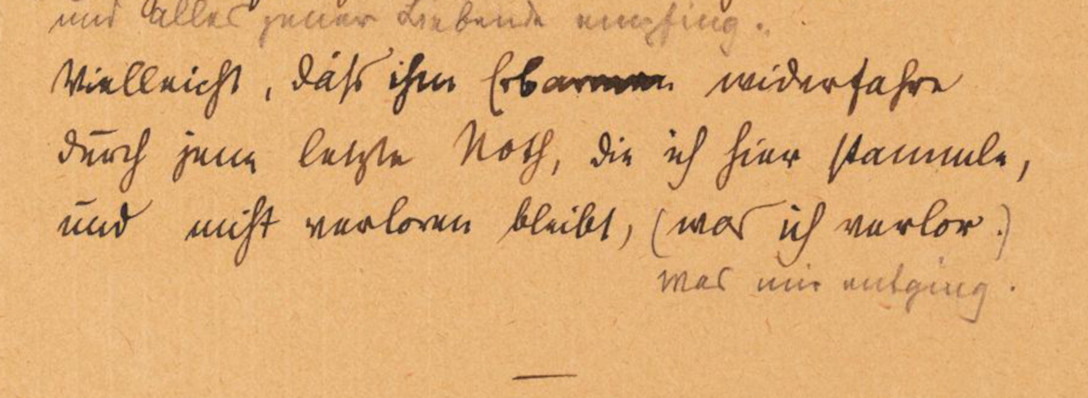 und alles jener Liebende empfing.
Vielleicht, daſs ihm Erbarmen widerfahre
durch jene letzte Noth, die ich hier stammle,
und nicht verloren bleibt, (was ich verlor.)
was mir entging.